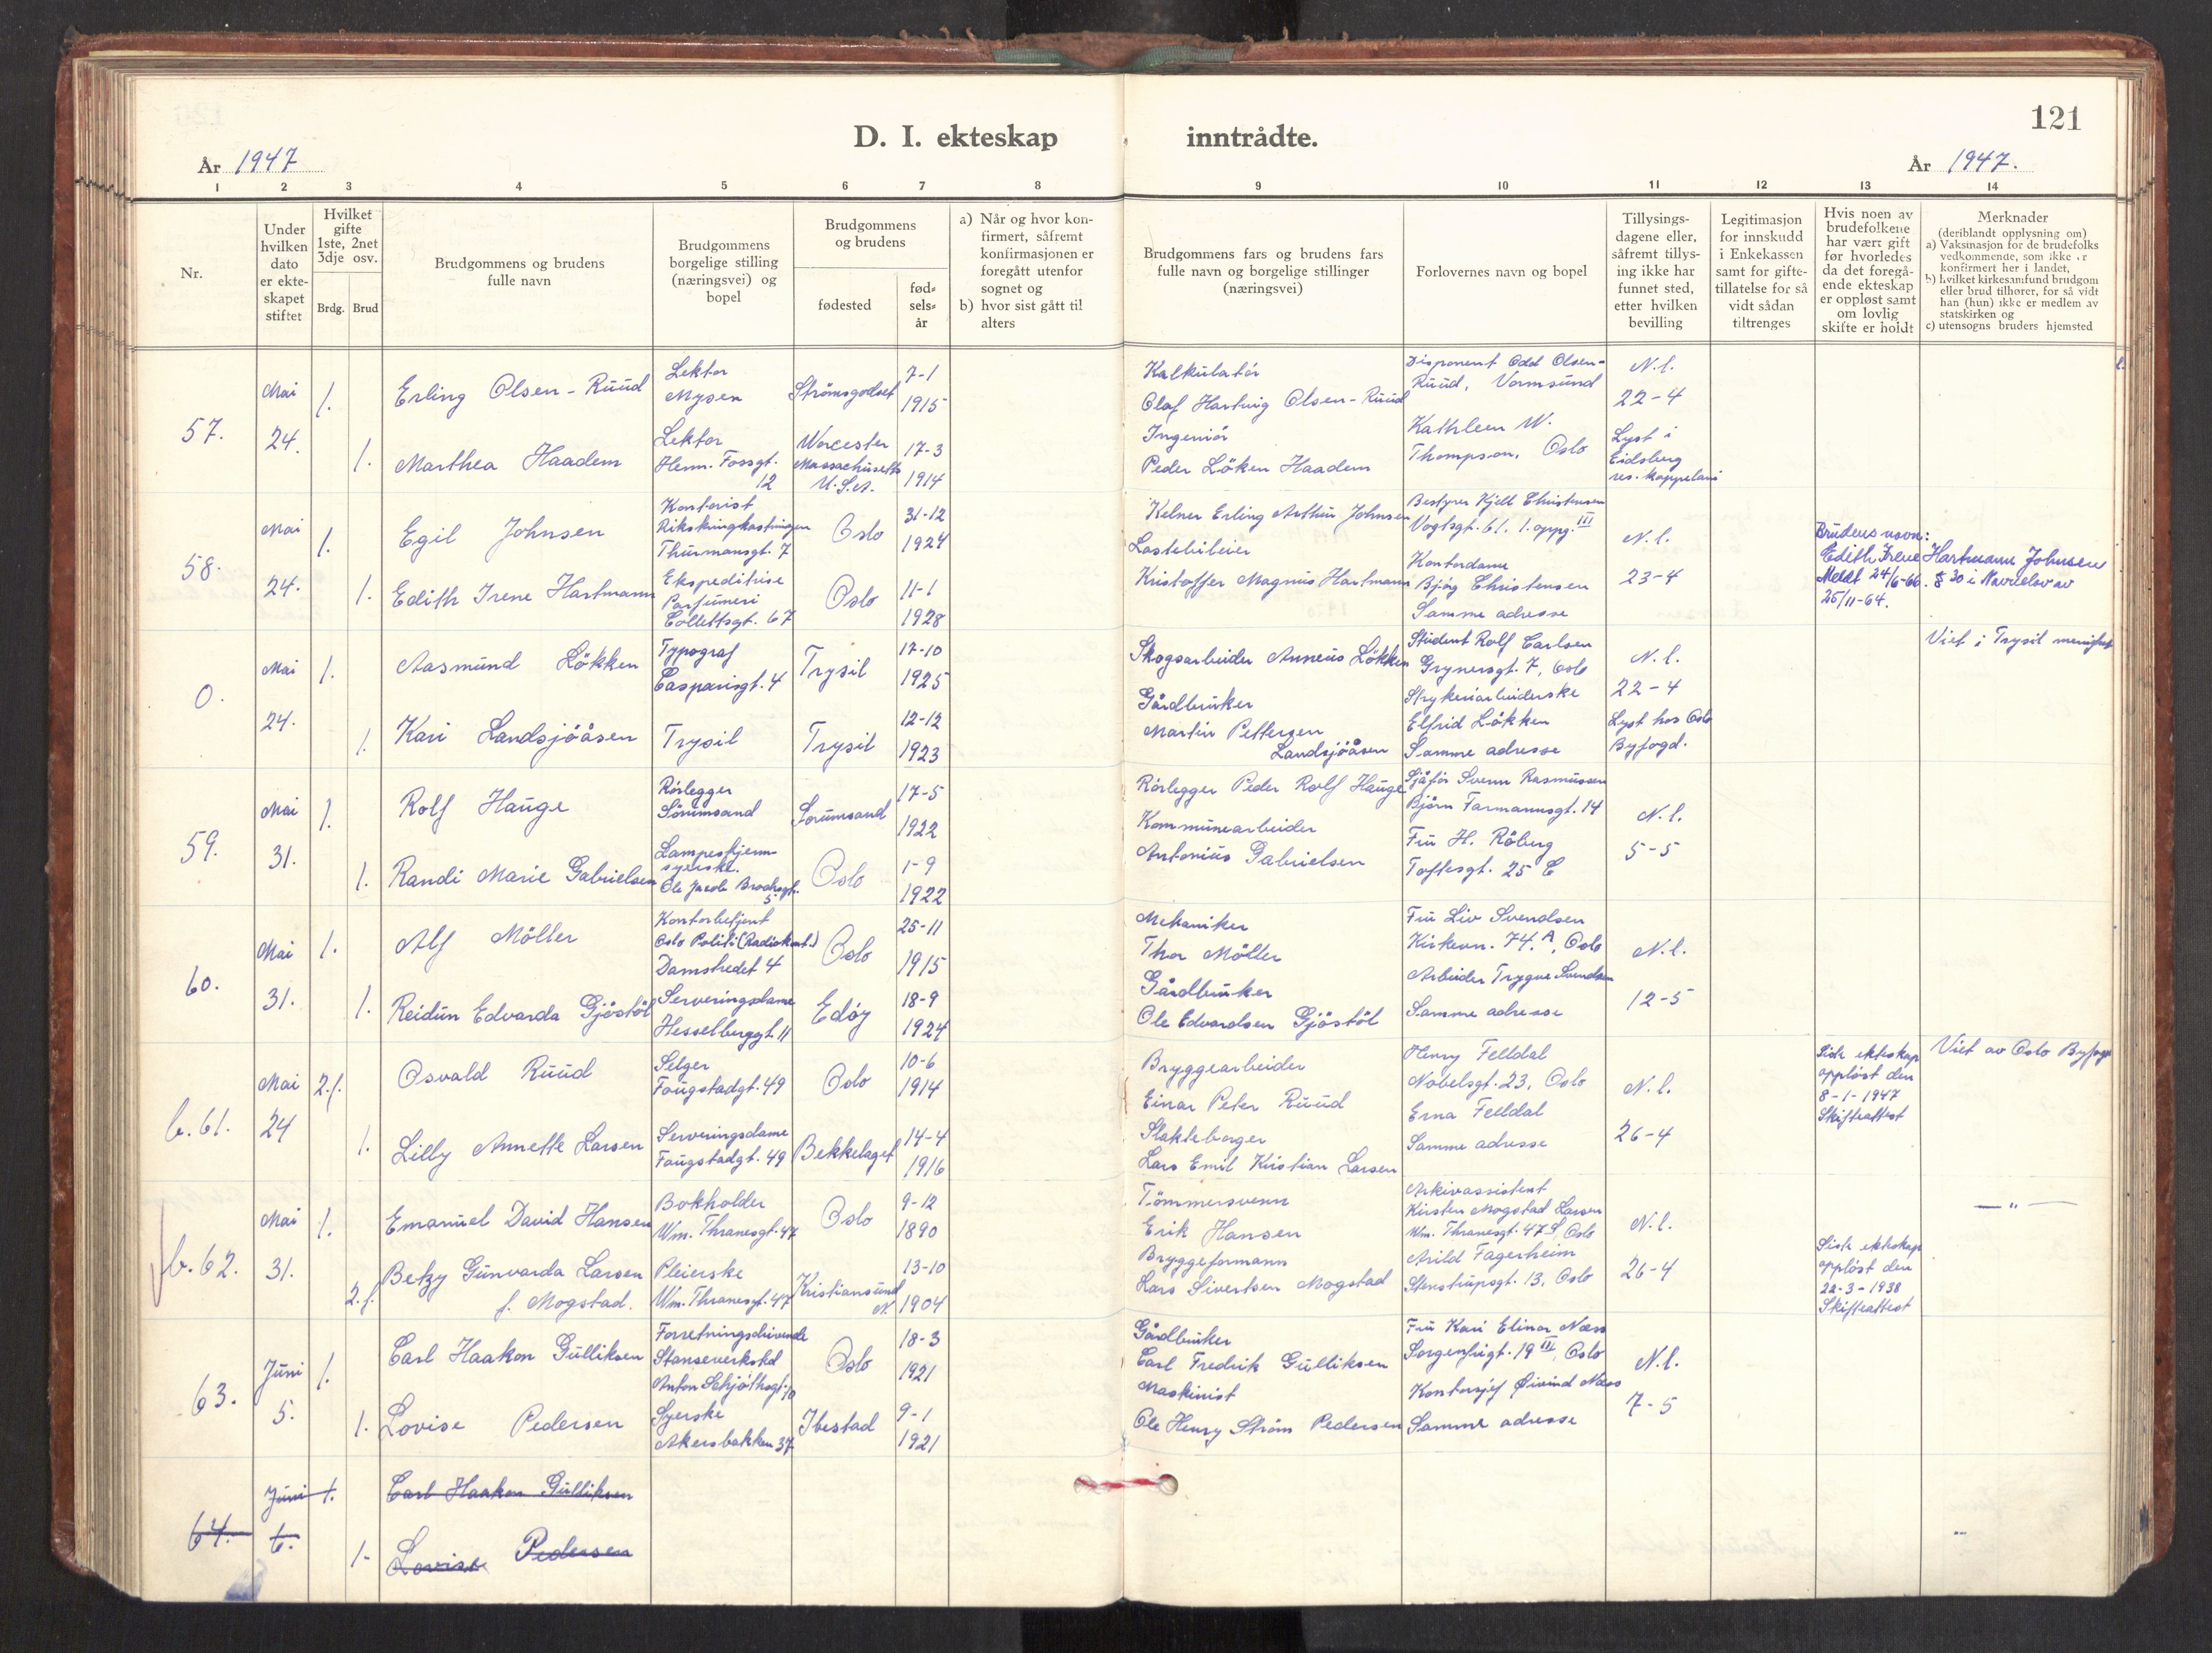 121
D. I. ekteskap inntrådte.
År 1947
År 1947.
1 2 3 4 5 6 7 8 9 10 11 12 13 14
Nr.
Under hvilken dato er ekteskapet stiftet
Hvilket gifte 1ste, 2net 3dje osv.
Brdg. Brud
Brudgommens og brudens fulle navn
Brudgommens borgelige stilling (næringsvei) og bopel
Brudgommens og brudens
fødested
fødselsår
a) Når og hvor konfirmert, såfremt konfirmasjonen er foregått utenfor sognet og
b) hvor sist gått til alters
Brudgommens fars og brudens fars fulle navn og borgelige stillinger (næringsvei)
Forlovernes navn og bopel
Tillysingsdagene eller, såfremt tillysing ikke har funnet sted, etter hvilken bevilling
Legitimasjon for innskudd i Enkekassen samt for giftetillatelse for så vidt sådan tiltrenges
Hvis noen av brudefolkene har vært gift før hvorledes da det foregående ekteskap er oppløst samt om lovlig skifte er holdt
Merknader
(deriblandt opplysning om)
a) Vaksinasjon for de brudefolks vedkommende, som ikke er konfirmert her i landet,
b) hvilket kirkesamfund brudgom eller brud tilhører, for så vidt han (hun) ikke er medlem av statskirken og
c) utensogns bruders hjemsted
57.
Mai
24.
1.
Erling Olsen-Ruud
Lektor
Mysen
Strömsgodset
7-1
1915
Kalkulatör
Olaf Hartvig Olsen-Ruud
Disponent Odd Olsen-
Ruud, Vormsund
N.l.
22-4
1.
Marthea Haadem
Lektor
Herm. Fossgt.
12
Worcester
Massachusetts
U.S.A.
17-3
1914
Ingeniör
Peder Löken Haadem
Kathleen W.
Thompson, Oslo
Lyst i
Eidsberg
res. kappelani
58.
Mai
24.
1.
Egil Johnsen
Kontorist
Rikskringkastningen
Thurmansgt. 7
Oslo
31-12
1924
Kelner Erling Arthur Johnsen
Bestyrer Kjell Christensen
Vogtsgt. 61. 1. oppg. III
N.l.
23-4
1.
Edith Irene Hartmann
Ekspeditrise
Parfumeri
Collettsgt. 67
Oslo
11-1
1928
Lastebileier
Kristoffer Magnus Hartmann
Kontordame
Bjög Christensen
Samme adresse
Brudens navn:
Edith Irene Hartmann Johnsen
Meldt 24/6-66. § 30 i Navnelov av
25/11-64.
0.
Mai
24.
1.
Aasmund Lökken
Typograf
Casparisgt. 4
Trysil
17-10
1925
Skogsarbeider Anneus Lökken
Student Rolf Carlsen
Grynersgt. 7, Oslo
N.l.
22-4
Viet i Trysil menighet
1.
Kari Landsjöåsen
Trysil
Trysil
12-12
1923
Gårdbruker
Martin Pettersen
Landsjöåsen
Strykeriarbeiderske
Elfrid Lökken
Samme adresse
Lyst hos Oslo
Byfogd.
59.
Mai
31.
1.
Rolf Hauge
Rörlegger
Sörumsand
Sörumsand
17-5
1922
Rörlegger Peder Rolf Hauge
Sjåför Svenn Rasmussen
Björn Farmannsgt. 14
N.l.
5-5
1.
Randi Marie Gabrielsen
Lampeskjerm-
syerske.
Ole Jacob Brochsgt.
5
Oslo
1-9
1922
Kommunearbeider
Antonius Gabrielsen
Fru H. Röberg
Toftesgt. 25 C
60.
Mai
31.
1.
Alf Möller
Kontorbetjent
Oslo Politi (Radiokont.)
Damstredet 4
Oslo
25-11
1915
Mekaniker
Thor Möller
Fru Liv Svendsen
Kirkevn. 74.A, Oslo
N.l.
12-5
1.
Reidun Edvarda Gjöstöl
Serveringsdame
Hesselberggt. 11
Edöy
18-9
1924
Gårdbruker
Ole Edvardsen Gjöstöl
Arbeider Trygve Svendsen
Samme adresse
b. 61.
Mai
24
2.f.
Osvald Ruud
Selger
Faugstadgt. 49
Oslo
10-6
1914
Bryggearbeider
Einar Peter Ruud
Henry Felldal
Nobelsgt. 23, Oslo
N.l.
26-4
Siste ekteskap
oppløst den
8-1-1947
Skifteattest
Viet av Oslo Byfogd
1.
Lilly Annette Larsen
Serveringsdame
Faugstadgt. 49
Bekkelaget
14-4
1916
Slakteborger
Lars Emil Kristian Larsen
Erna Felldal
Samme adresse
b. 62.
Mai
31.
1.
Emanuel David Hansen
Bokholder
Wm. Thranesgt. 47
Oslo
9-12
1890
Tömmersvenn
Erik Hansen
Arkivassistent
Kirsten Mogstad Larsen
Wm. Thranesgt. 47, Oslo
N.l.
26-4
— " —
2.f.
Betzy Gunvarda Larsen
f. Mogstad.
Pleierske
Wm. Thranesgt. 47
Kristiansund
N.
13-10
1904
Bryggeformann
Lars Sivertsen Mogstad
Arild Fagerheim
Stenstrupsgt. 13, Oslo
Siste ekteskap
oppløst den
22-3-1938
Skifteattest
63.
Juni
5.
1.
Carl Haakon Gulliksen
Forretningsdrivende
Stanseverksted
Anton Schjöthsgt. 10
Oslo
18-3
1921
Gårdbruker
Carl Fredrik Gulliksen
Fru Kari Elinor Næss
Sorgenfrigt. 19 III, Oslo
N.l.
7-5
1.
Lovise Pedersen
Syerske
Akersbakken 37
Ibestad
9-1
1921
Maskinist
Ole Henry Ström Pedersen
Kontorsjef Öivind Næss
Samme adresse
64.
Juni
6.
1.
Carl Haakon Gulliksen
1.
Lovise Pedersen